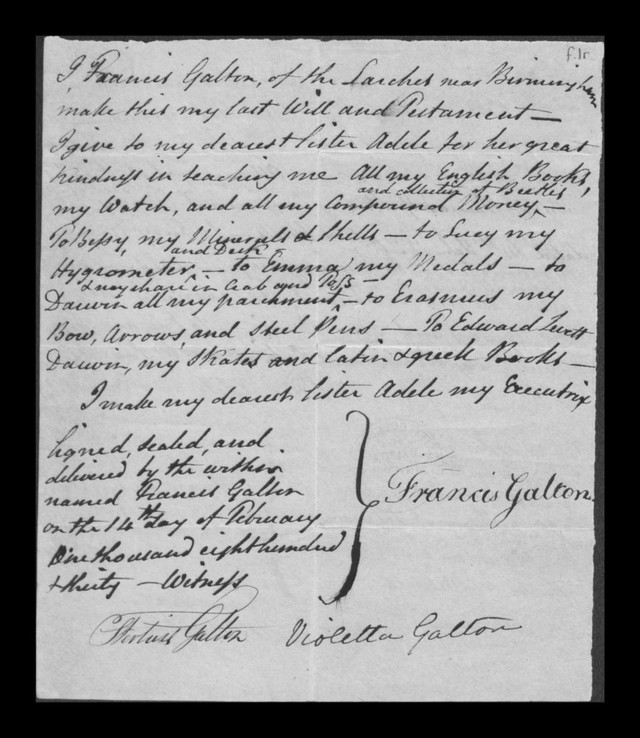 f.1r
I Francis Galton, of the Larches near Birmingham
make this my last Will and Testament —
I give to my dearest Sister Adele for her great
kindness in teaching me All my English Books,
my Watch, and all my Compound Money, —
and collection of Beetles
To Bessy, my Minerals & Shells — to Lucy my
and Desk
Hygrometer, — to Emma, my Medals — to
& my share in Crab and
Darwin all my parchment, — to Erasmus my
Bow, Arrows, and Steel Pens — To Edward Levett
Darwin, my Skates and latin & greek Books —
I make my dearest Sister Adele my Executrix
Signed, sealed, and
delivered by the within
named Francis Galton
on the 14th day of February
One thousand eight hundred
& thirty — Witness
Francis Galton.
Tertius Galton
Violetta Galton